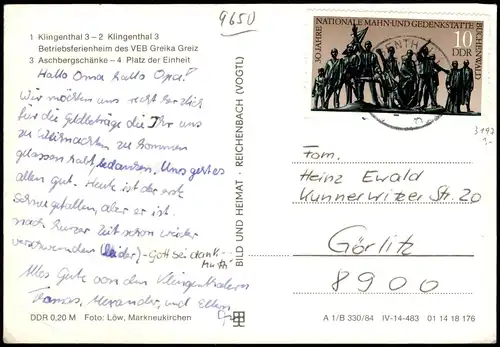 9650
1 Klingenthal 3 – 2 Klingenthal 3
Betriebsferienheim des VEB Greika Greiz
3 Aschbergschänke – 4 Platz der Einheit
Hallo Oma hallo Opa!
Wir möchten uns recht herzlich
für die Geldbeträge die Ihr uns
zu Weihnachten zu kommen
gelassen habt, bedanken. Uns geht es
allen gut. Heute ist der erste
Schnee gefallen, aber er ist
nach kurzer Zeit schon wieder
verschwunden (leider) - Gott sei dank -
Mutti
Alles Gute von den Klingenthalern
Thomas, Alexander, und Eltern
DDR 0,20 M Foto: Löw, Markneukirchen
BILD UND HEIMAT · REICHENBACH (VOGTL)
30 JAHRE NATIONALE MAHN-UND GEDENKSTÄTTE BUCHENWALD
10
DDR
3197
Fam.
Heinz Ewald
Kunnerwitzer Str. 20
Görlitz
8900
A 1/B 330/84 IV-14-483 01 14 18 176